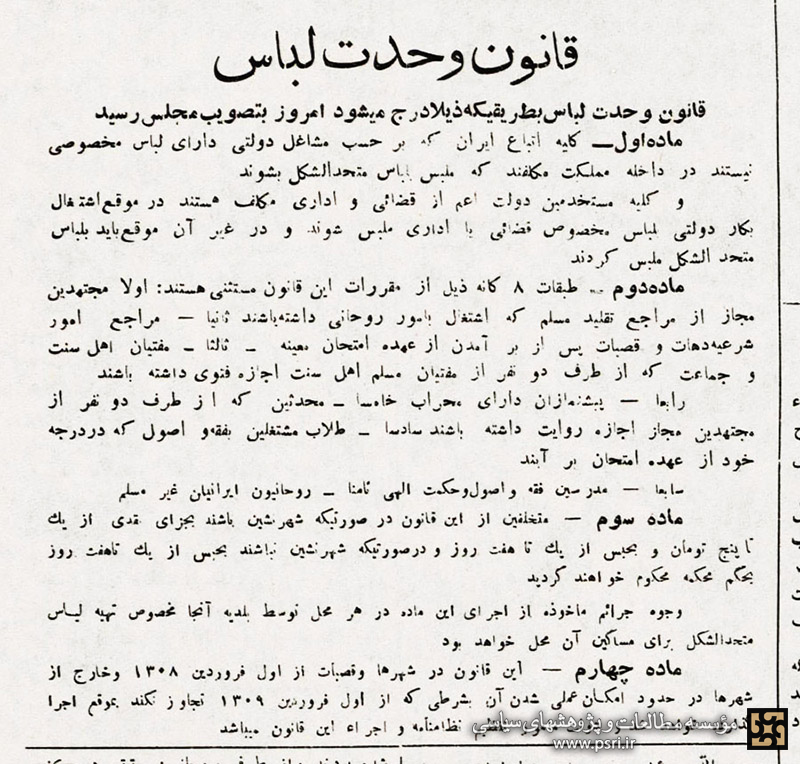 قانون وحدت لباس
قانون وحدت لباس بطریقیکه ذیلا درج میشود امروز بتصویب مجلس رسید
ماده اول ــ کلیه اتباع ایران که بر حسب مشاغل دولتی دارای لباس مخصوصی
نیستند در داخله مملکت مکلفند که ملبس بلباس متحدالشکل بشوند
و کلیه مستخدمین دولت اعم از قضائی و اداری مکلف هستند در موقع اشتغال
بکار دولتی لباس مخصوص قضائی یا اداری ملبس شوند و در غیر آن موقع باید بلباس
متحد الشکل ملبس گردند
ماده دوم ــ طبقات ۸ گانه ذیل از مقررات این قانون مستثنی هستند: اولا مجتهدین
مجاز از مراجع تقلید مسلم که اشتغال بامور روحانی داشته باشند ثانیا — مراجع امور
شرعیه دهات و قصبات پس از بر آمدن از عهده امتحان معینه ــ ثالثا ــ مفتیان اهل سنت
و جماعت که از طرف دو نفر از مفتیان مسلم اهل سنت اجازه فتوی داشته باشند
رابعا — پیشنمازان دارای محراب خامسا ــ محدثین که از طرف دو نفر از
مجتهدین مجاز اجازه روایت داشته باشند سادسا ــ طلاب مشتغلین بفقه و اصول که در درجه
خود از عهده امتحان بر آیند
سابعا — مدرسین فقه و اصول و حکمت الهی ثامنا ــ روحانیون ایرانیان غیر مسلم
ماده سوم — متخلفین از این قانون در صورتیکه شهرنشین باشند بجزای نقدی از یك
تا پنج تومان و بحبس از یك تا هفت روز و درصورتیکه شهرنشین نباشند بحبس از یك تا هفت روز
بحکم محکمه محکوم خواهند گردید
وجوه جرائم ماخوذه از اجرای این ماده در هر محل توسط بلدیه آنجا مخصوص تهیه لباس
متحدالشکل برای مساکین آن محل خواهد بود
ماده چهارم — این قانون در شهرها و قصبات از اول فروردین ۱۳۰۸ و خارج از
شهرها در حدود امکان عملی شدن آن بشرطی که از اول فروردین ۱۳۰۹ تجاوز نکند بموقع اجرا
نظامنامه و اجراء این قانون میباشد
مؤسسه مطالعات و پژوهشهای سیاسی
www.psri.ir